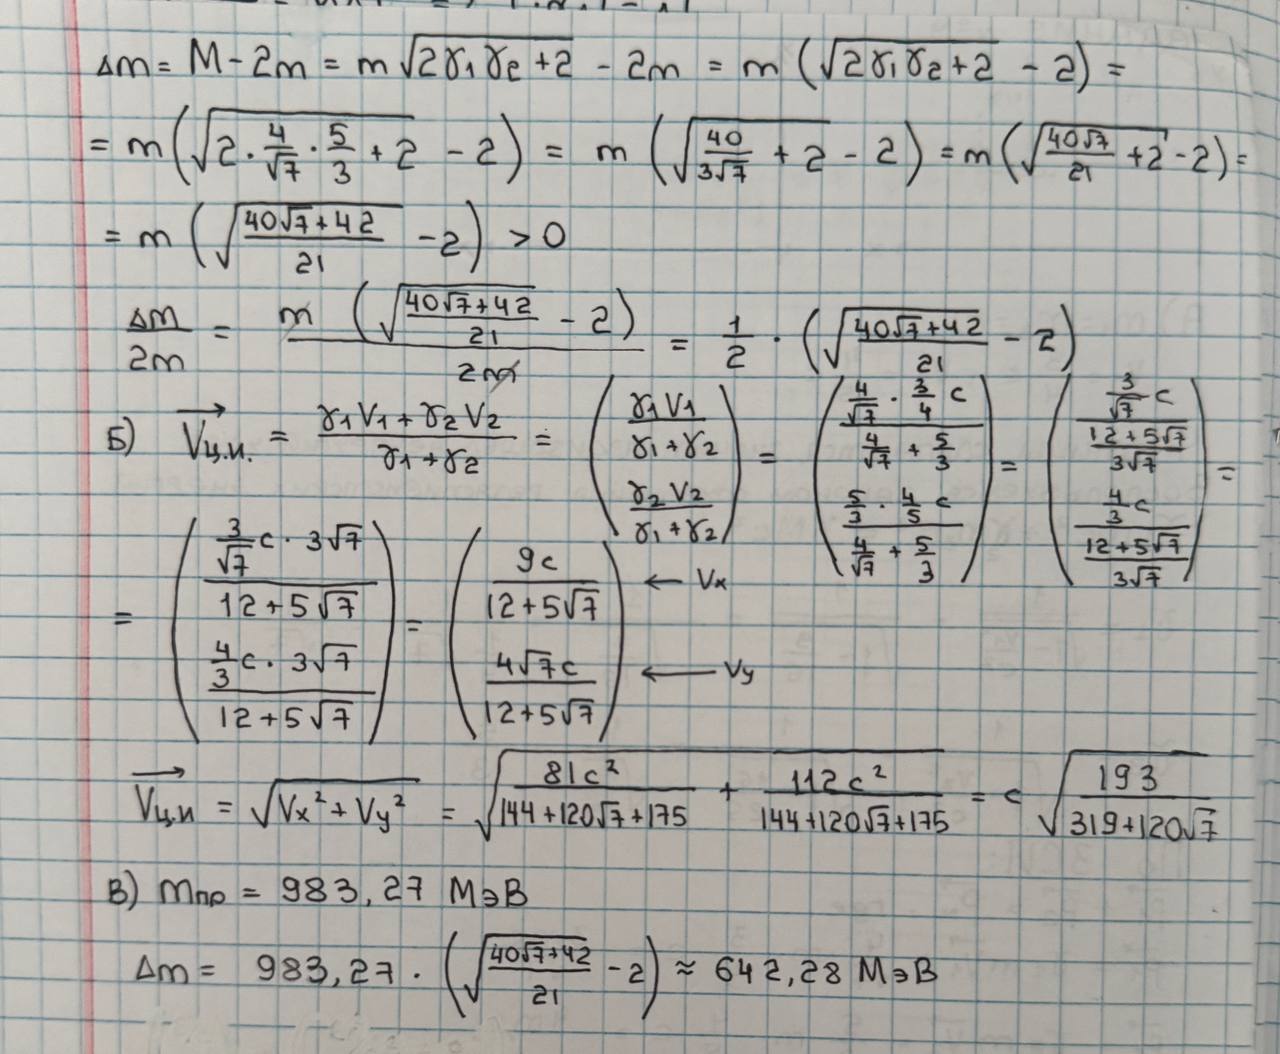 Δm = M - 2m = m√(2γ₁γ₂+2) - 2m = m (√(2γ₁γ₂+2) - 2) =
= m (√(2 · 4/√7 · 5/3 + 2) - 2) = m (√(40/(3√7) + 2) - 2) = m (√(40√7/21 + 2) - 2) =
= m (√((40√7+42)/21) - 2) > 0
Δm/2m = m (√((40√7+42)/21) - 2) / 2m = 1/2 · (√((40√7+42)/21) - 2)
Б) V⃗ц.и. = (γ₁V₁ + γ₂V₂)/(γ₁+γ₂) = (γ₁V₁/(γ₁+γ₂); γ₂V₂/(γ₁+γ₂)) = ((4/√7 · 3/4 c)/(4/√7 + 5/3); (5/3 · 4/5 c)/(4/√7 + 5/3)) = ((3/√7 c)/((12+5√7)/(3√7)); (4/3 c)/((12+5√7)/(3√7))) =
= ((3/√7 c · 3√7)/(12+5√7); (4/3 c · 3√7)/(12+5√7)) = (9c/(12+5√7) ← Vx; 4√7c/(12+5√7) ← Vy)
V⃗ц.и = √(Vx² + Vy²) = √(81c²/(144+120√7+175) + 112c²/(144+120√7+175)) = c √(193/(319+120√7))
В) mпр = 983,27 МэВ
Δm = 983,27 · (√((40√7+42)/21) - 2) ≈ 642,28 МэВ